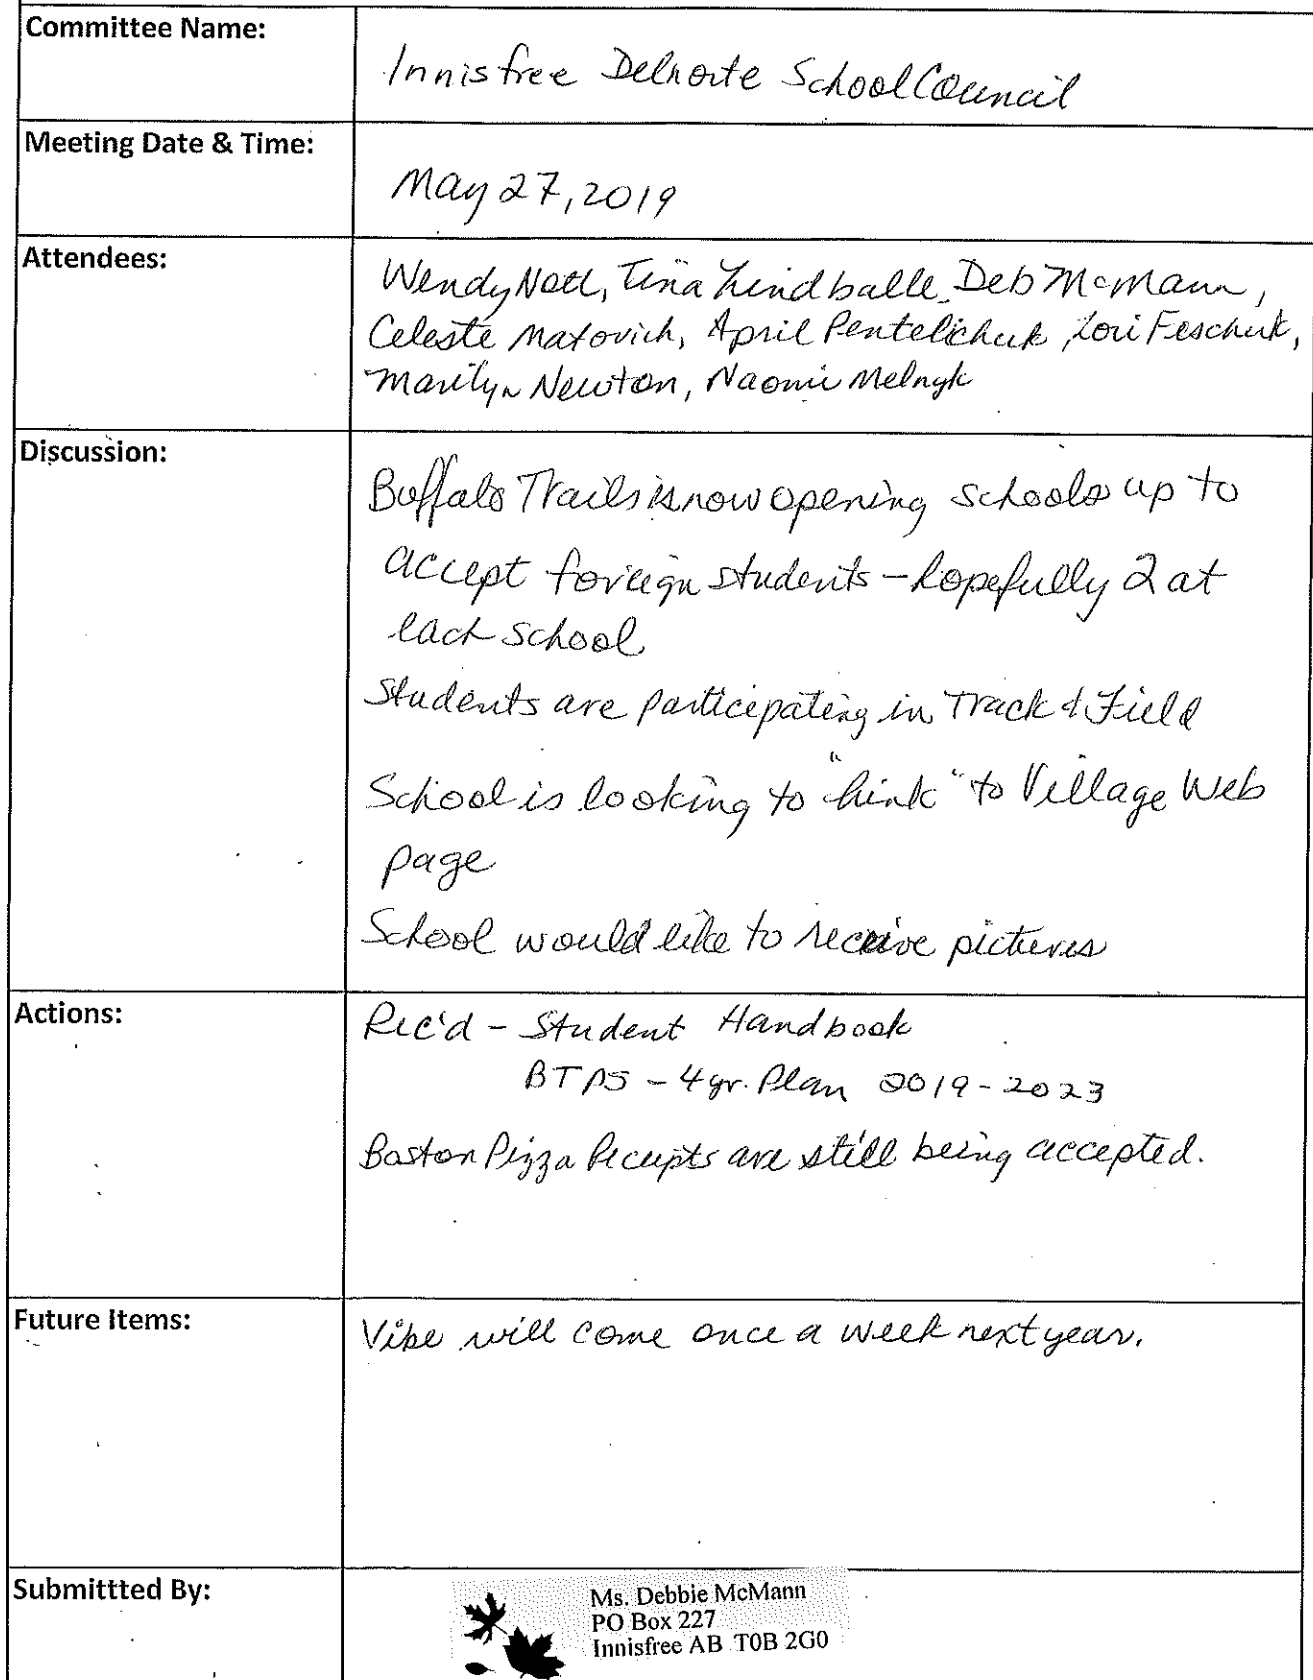 Committee Name:
Innisfree Delnorte School Council
Meeting Date & Time:
May 27, 2019
Attendees:
Wendy Tina Lindballe, Deb McMann,
Celeste Matovich, April Pentelichuk, Lori Feschuk,
Marilyn Newton, Naomi Melnyk
Discussion:
Buffalo Trails is now opening schools up to
accept foreign students - hopefully 2 at
each school
Students are participating in Track & Field
School is looking to "Link" to Village Web
page
School would like to receive pictures
Actions:
Rec'd - Student Handbook
BTPS - 4 yr. Plan 2019-2023
Boston Pizza Receipts are still being accepted.
Future Items:
Vibe will come once a week next year.
Submittted By:
Ms. Debbie McMann
PO Box 227
Innisfree AB T0B 2G0